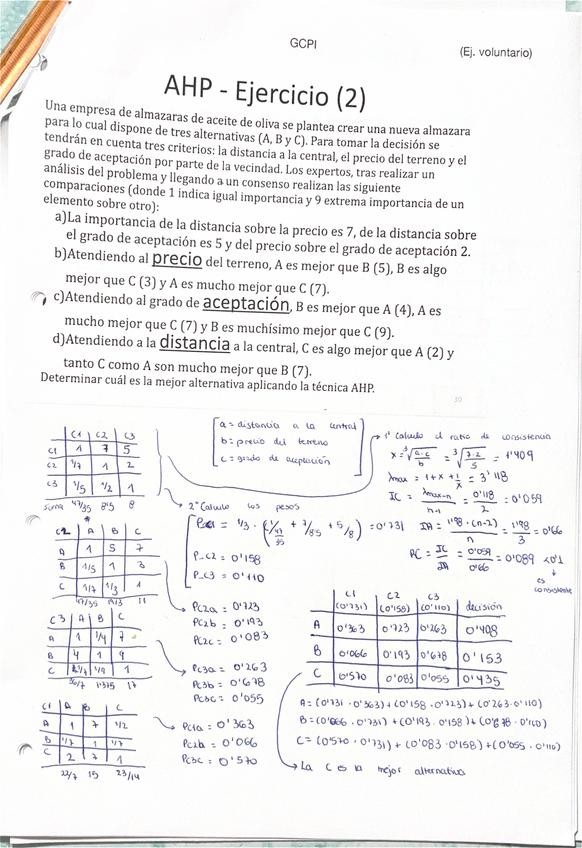 GCPI
(Ej. voluntario)
AHP - Ejercicio (2)
Una empresa de almazaras de aceite de oliva se plantea crear una nueva almazara
para lo cual dispone de tres alternativas (A, B y C). Para tomar la decisión se
tendrán en cuenta tres criterios: la distancia a la central, el precio del terreno y el
grado de aceptación por parte de la vecindad. Los expertos, tras realizar un
análisis del problema y llegando a un consenso realizan las siguiente
comparaciones (donde 1 indica igual importancia y 9 extrema importancia de un
elemento sobre otro):
a)La importancia de la distancia sobre la precio es 7, de la distancia sobre
el grado de aceptación es 5 y del precio sobre el grado de aceptación 2.
b)Atendiendo al precio del terreno, A es mejor que B (5), B es algo
mejor que C (3) y A es mucho mejor que C (7).
c)Atendiendo al grado de aceptación, B es mejor que A (4), A es
mucho mejor que C (7) y B es muchísimo mejor que C (9).
d)Atendiendo a la distancia a la central, C es algo mejor que A (2) y
tanto C como A son mucho mejor que B (7).
Determinar cuál es la mejor alternativa aplicando la técnica AHP.
a = distancia a la central
b = precio del terreno
c = grado de aceptación
C1 C2 C3
C1 1 7 5
C2 1/7 1 2
C3 1/5 1/2 1
suma 47/35 8'5 8
1º Calculo el ratio de consistencia
x = ³√(a·c/b) = ³√(7·2/5) = 1'409
λmax = 1+x+1/x = 3'118
IC = λmax-n/n-1 = 0'118/2 = 0'059
IA = 1'98·(n-2)/n = 1'98/3 = 0'66
RC = IC/IA = 0'059/0'66 = 0'089 <0'1
↓
es
consistente
2º Calculo los pesos
Pc1 = 1/3 · (1/47/35 + 7/8'5 + 5/8) = 0'731
P_C2 = 0'158
P_C3 = 0'110
C2 A B C
A 1 5 7
B 1/5 1 3
C 1/7 1/3 1
47/35 19/3 11
Pc2a = 0'723
Pc2b = 0'193
Pc2c = 0'083
C3 A B C
A 1 1/4 7
B 4 1 9
C 1/7 1/9 1
36/7 1'375 17
Pc3a = 0'263
Pc3b = 0'678
Pc3c = 0'055
C1 A B C
A 1 7 1/2
B 1/7 1 1/7
C 2 7 1
22/7 15 23/14
Pc1a = 0'363
Pc2b = 0'066
Pc3c = 0'570
C1 C2 C3
(0'731) (0'158) (0'110) decisión
A 0'363 0'723 0'263 0'408
B 0'066 0'193 0'678 0'153
C 0'570 0'083 0'055 0'435
A = (0'731 · 0'363) + (0'158 · 0'723) + (0'263 · 0'110)
B = (0'066 · 0'731) + (0'193 · 0'158) + (0'678 · 0'110)
C = (0'570 · 0'731) + (0'083 · 0'158) + (0'055 · 0'110)
La C es la mejor alternativa